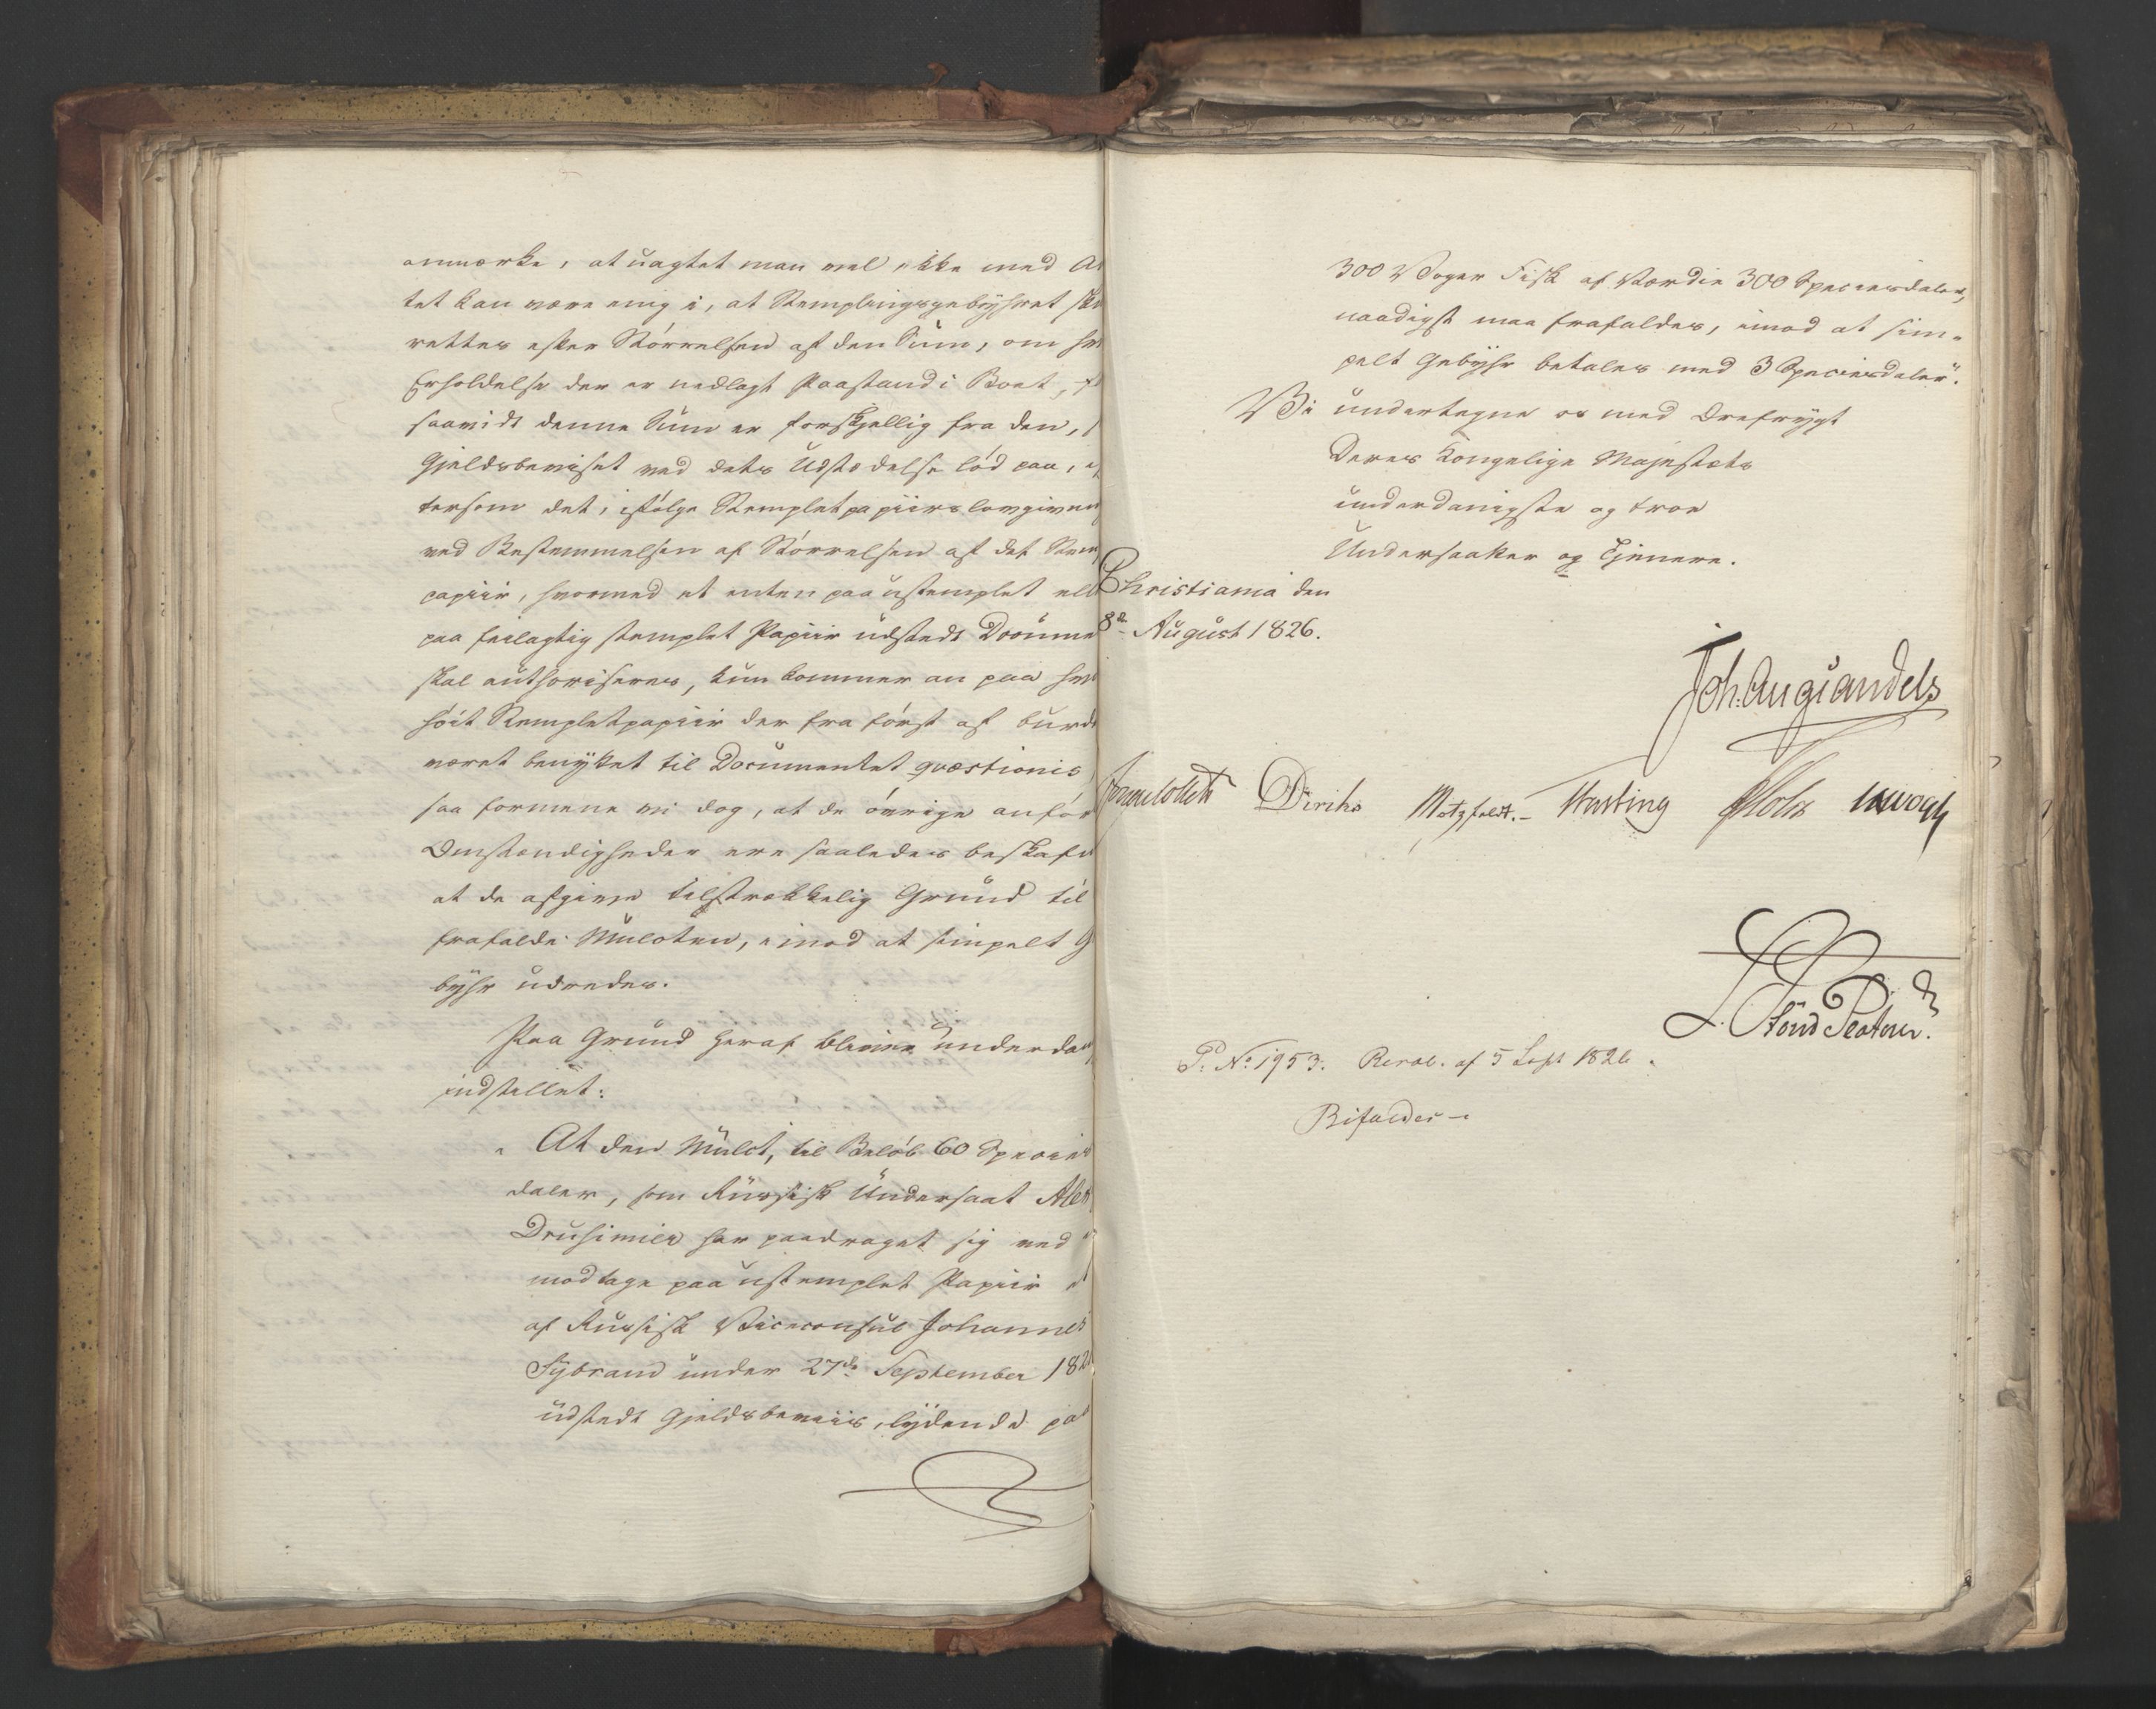 anmærke, at uagtet man vel ikke med A
tet kan være enig i, at Stemplingsgebyhret ska
rettes efter Störrelsen af den Sum, om hvi
Erholdelse der er nedlagt Paastand i Boet, f
saavidt denne Sum er forskjellig fra den,
Gjeldsbeviset ved dets Udstedelse löd paa, e
tersom det, ifölge Stempletpapiirslovgivn
ved Bestemmelsen af Störrelsen af det Stem
papiir, hvormed et enten paa ustemplet ell
paa feilagtig stemplet Papiir udstedt Docume
skal authoriseres, kun kommer an paa hvi
höit Stempletpapiir der fra först af burde
været benyttet til Documentet qvæstionis,
saa formene vi dog, at de övrige anför
Omstændigheder ere saaledes beskafne
at de afgive tilstrækkelig Grund til
frafalde Mulcten, imod at simpelt G
byhr udredes.
Paa Grund heraf bliver underda
indstillet:
" At den Mulct, til Belöb 60 Species
daler, som Russisk Undersaat Alex
Drusimier har paadraget sig ved
modtage paa ustemplet Papiir et
af Russisk Viceconsul Johannes
Sybrand under 27de September 182
udstedt Gjeldsbeviis, lydende paa
300 Voger Fisk af Værdie 300 Speciesdaler,
naadigst maa frafaldes, imod at sim-
pelt Gebyhr betales med 3 Speciesdaler".
Vi undertegne os med Ærefrygt
Deres Kongelige Majestæts
underdanigste og troe
Undersaatter og Tjenere.
Christiania den
8de August 1826.
Joh. Aug Sandels
Diriks Motzfeldt.- Fasting Holst
P. No 1953. Resol. af 5 Sept 1826.
Bifaldes -